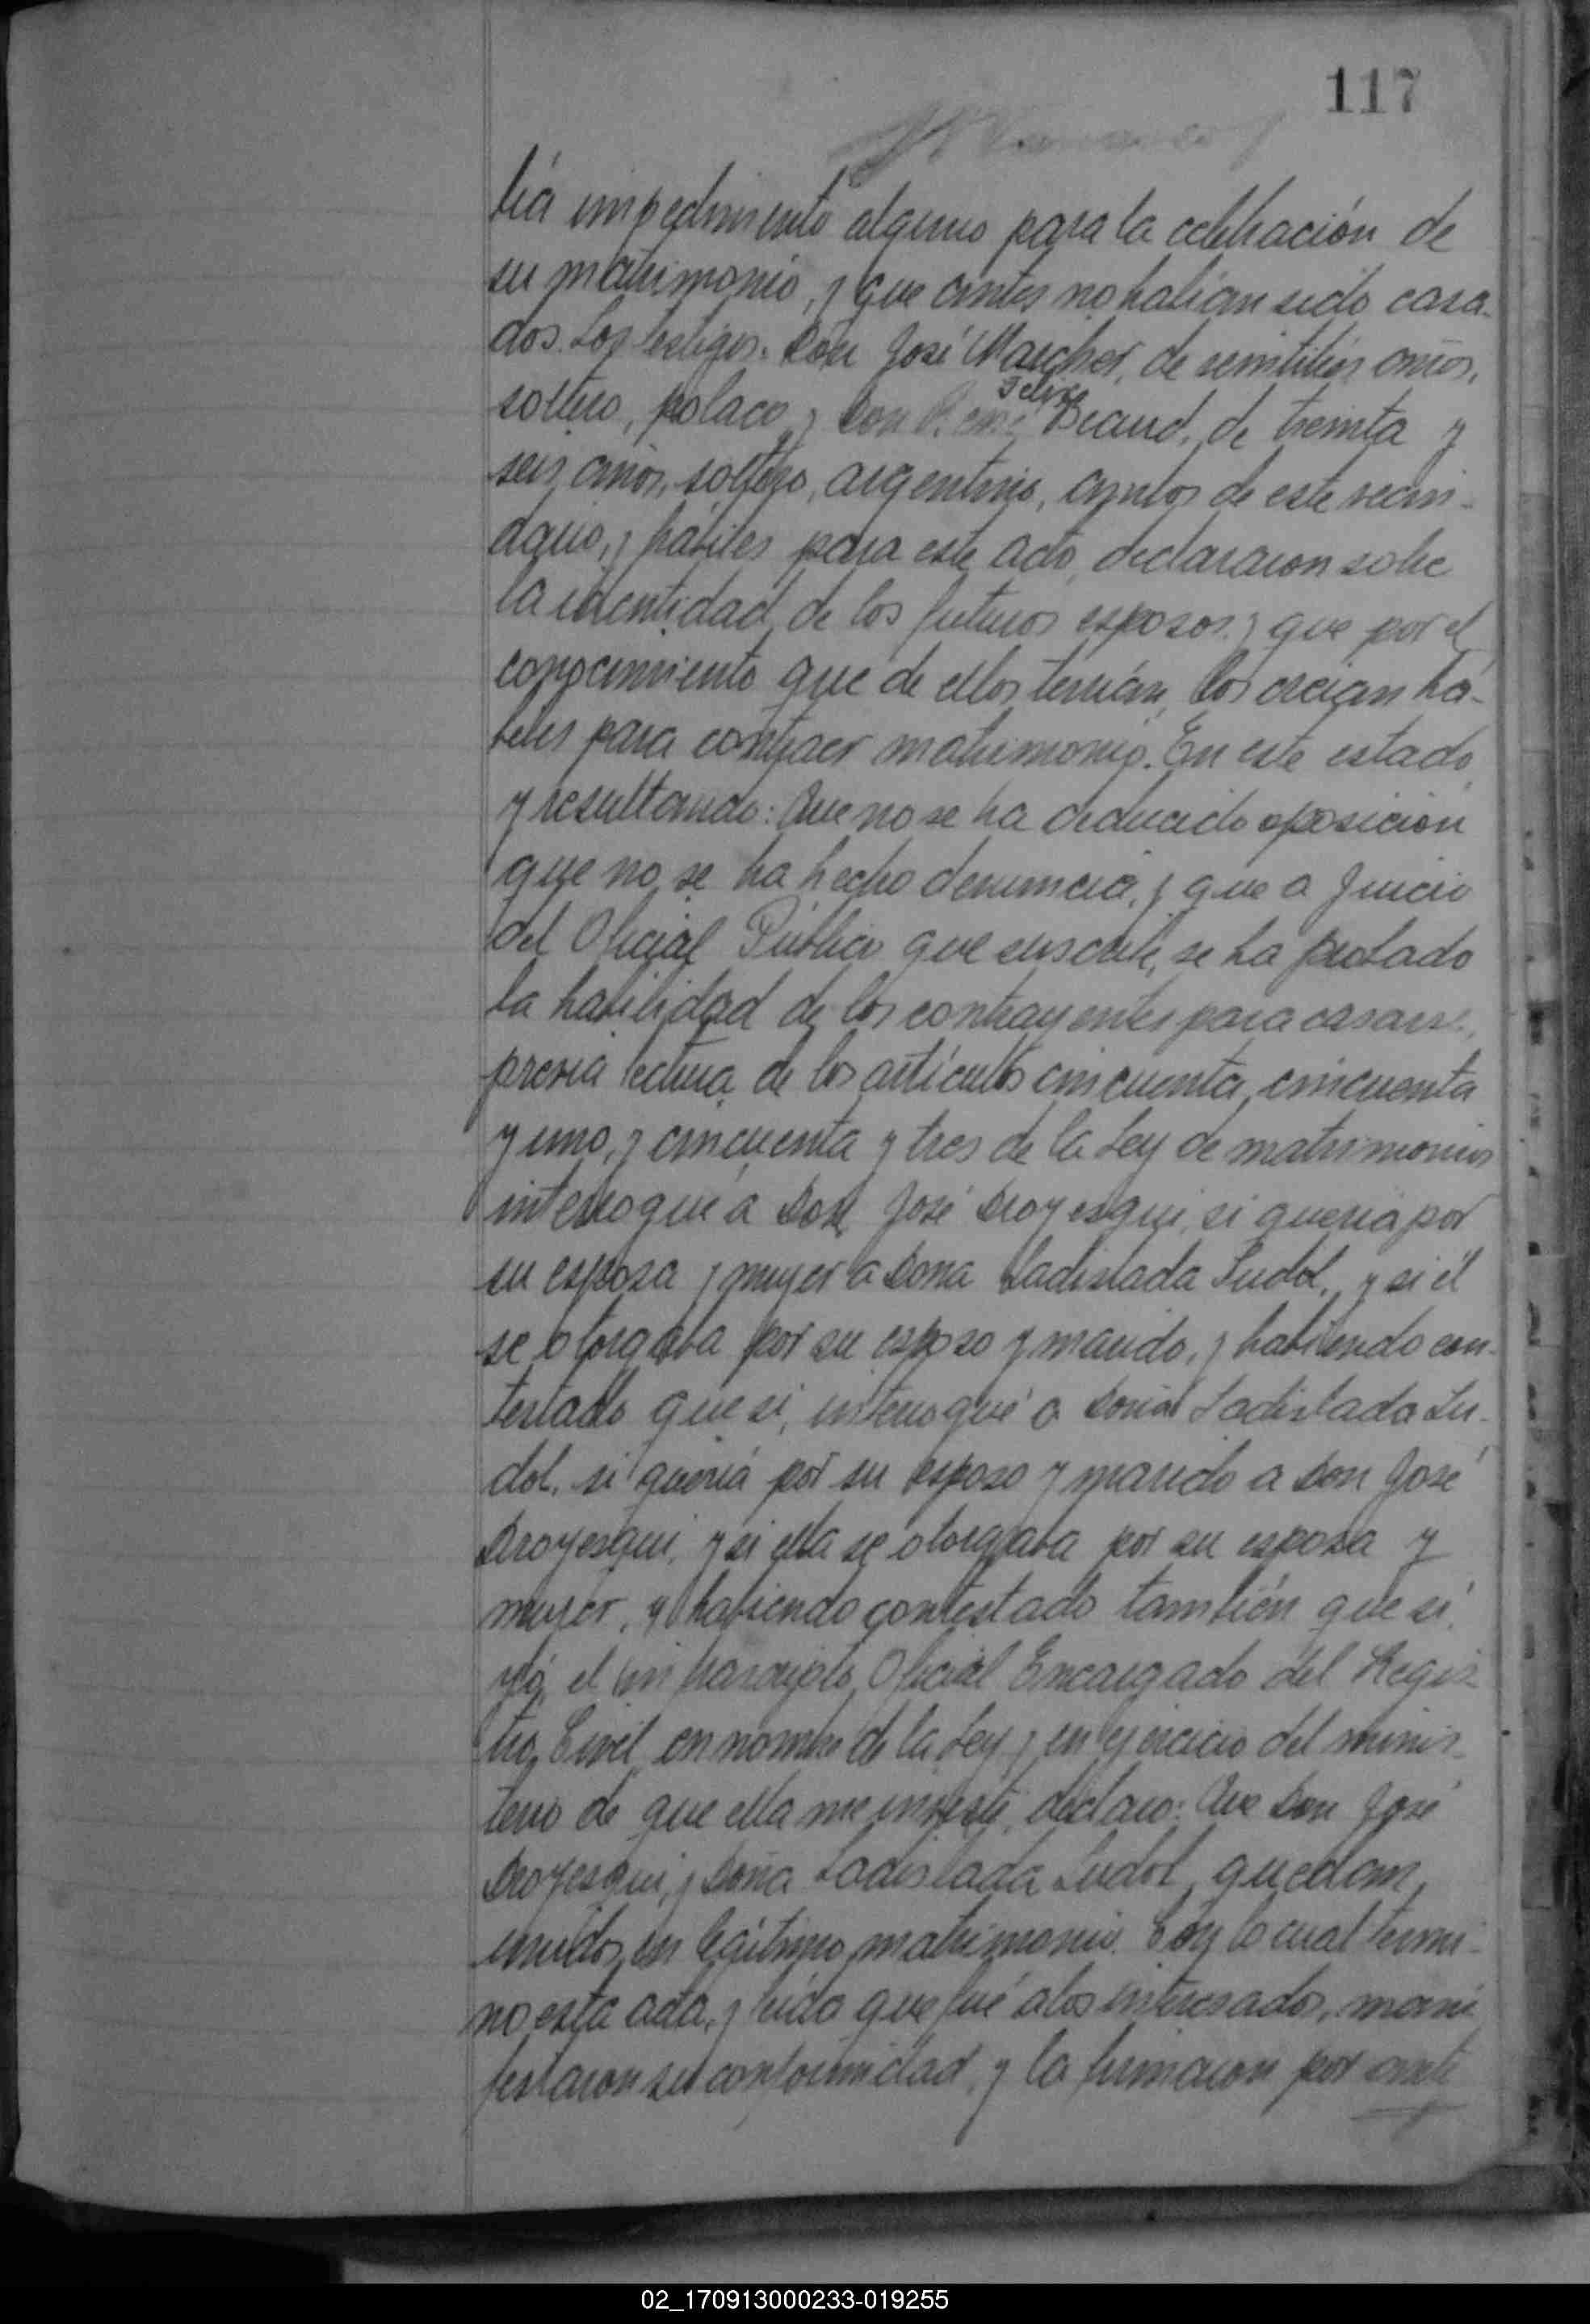 117
bía impedimento alguno para la celebración de
su matrimonio, y que antes no habían sido casa-
dos. Los testigos: Don José Marcher, de veintitrés años,
Felipe
soltero, polaco, y Don Beaud, de treinta y
seis años, soltero, argentino, ambos de este vecin-
dario, y hábiles para este acto, declararon sobre
la identidad de los futuros esposos, y que por el
conocimiento que de ellos tenían, los creían há-
biles para contraer matrimonio. En este estado,
y resultando: Que no se ha deducido oposición
que no se ha hecho denuncia, y que a juicio
del Oficial Público que suscribe, se ha probado
la habilidad de los contrayentes para casarse,
previa lectura de los artículos cincuenta, cincuenta
y uno, y cincuenta y tres de la Ley de matrimonios
interrogué a Don José Droyesqui, si quería por
su esposa y mujer a Doña Ladislada Sudol, y si él
se otorgaba por su esposo y marido, y habiendo con-
testado que si, interrogué a Doña Ladislada Su-
dol, si quería por su esposo y marido a Don José
Droyesqui, y si ella se otorgaba por su esposa y
mujer, y habiendo contestado también que si,
yó, el infrascripto Oficial Encargado del Regis-
tro Civil, en nombre de la Ley, y en ejercicio del minis-
terio de que ella me inviste, declaro: Que Don José
Droyesqui, y Doña Ladislada Sudol, quedan
unidos en legítimo matrimonio. Con lo cual termi-
nó esta acta, y leída que fué a los interesados, mani
festaron su conformidad, y la firmaron por ante
02_170913000233-019255